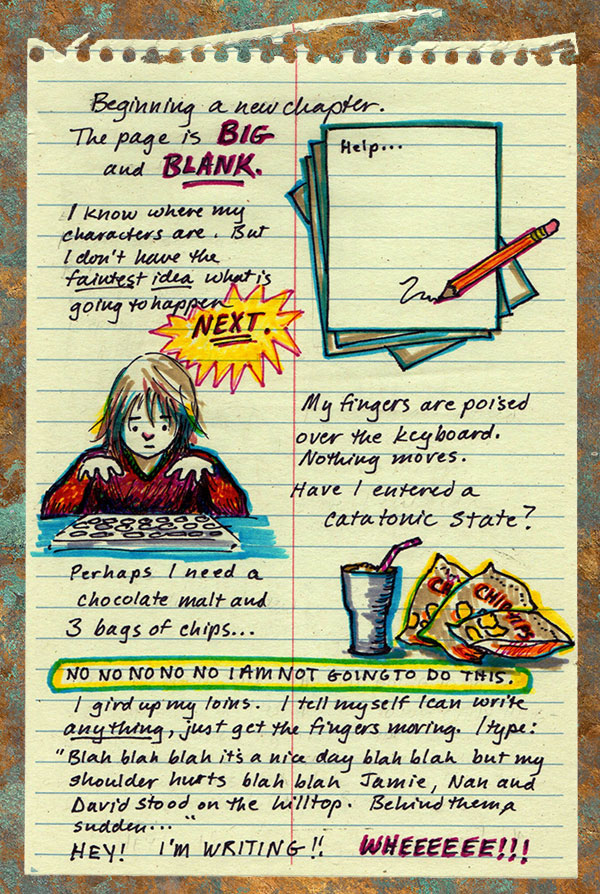 Beginning a new chapter.
The page is BIG
and BLANK.
Help...
I know where my
characters are. But
I don't have the
faintest idea what is
going to happen
NEXT.
My fingers are poised
over the keyboard.
Nothing moves.
Have I entered a
catatonic state?
Perhaps I need a
chocolate malt and
3 bags of chips...
CH
CHIPS
IPS
NO NO NO NO NO I AM NOT GOING TO DO THIS.
I gird up my loins. I tell myself I can write
anything, just get the fingers moving. I type:
"Blah blah blah it's a nice day blah blah but my
shoulder hurts blah blah Jamie, Nan and
David stood on the hilltop. Behind them a
sudden... "
HEY! I'M WRITING!! WHEEEEEE!!!